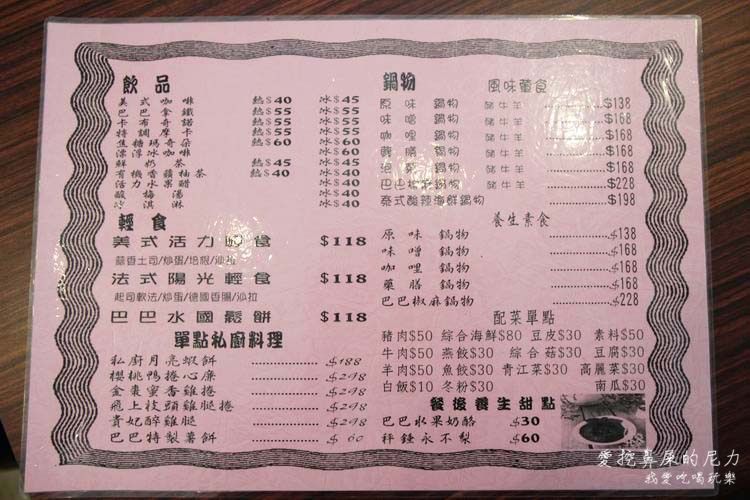 飲品
美式咖啡 熱$40 冰$45
巴巴拿鐵 熱$55 冰$55
卡布奇諾 熱$55 冰$55
特調摩卡 熱$55 冰$55
焦糖瑪奇朵 熱$60 冰$60
漂浮冰咖啡 冰$60
鮮奶茶 熱$45 冰$45
有機香蘋柚茶 熱$40 冰$40
活力水果醋 冰$40
酸梅湯 冰$40
冰淇淋 冰$40
輕食
美式活力輕食 $118
蒜香土司/炒蛋/培根/沙拉
法式陽光輕食 $118
起司軟法/炒蛋/德國香腸/沙拉
巴巴水國鬆餅 $118
單點私廚料理
私廚月亮蝦餅 $188
櫻桃鴨捲心廉 $298
金棗蜜香雞捲 $298
飛上枝頭雞腿捲 $298
貴妃醉雞腿 $298
巴巴特製薯餅 $60
鍋物 風味葷食
原味鍋物 豬牛羊 $138
味噌鍋物 豬牛羊 $168
咖哩鍋物 豬牛羊 $168
藥膳鍋物 豬牛羊 $168
泡菜鍋物 豬牛羊 $168
巴巴椒麻鍋物 豬牛羊 $228
泰式酸辣海鮮鍋物 $198
養生素食
原味鍋物 $138
味噌鍋物 $168
咖哩鍋物 $168
藥膳鍋物 $168
巴巴椒麻鍋物 $228
配菜單點
豬肉$50 綜合海鮮$80 豆皮$30 素料$50
牛肉$50 燕餃$30 綜合菇$30 豆腐$30
羊肉$50 魚餃$30 青江菜$30 高麗菜$30
白飯$10 冬粉$30 南瓜$30
餐後養生甜點
巴巴水果奶酪 $30
秤錘永不梨 $60
愛挖鼻屎的尼力
我愛吃喝玩樂